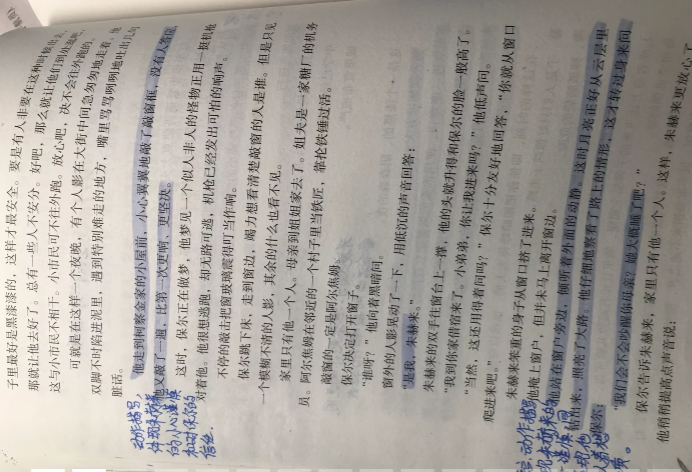 子里最好是黑漆漆的，这样才最安全。要是有人非要在这种时候出去，
那就让他去好了。总有一些人不安分。好吧，那么就让他们到处逛吧，
这与小市民不相干。小市民可不往外跑。放心吧，决不会往外跑的。
可就是在这样一个夜晚，有个人影在大街中间急匆匆地走着。他
双脚不时陷进泥里，遇到特别难走的地方，嘴里骂骂咧咧地吐出几句
脏话。
他走到柯察金家的小屋前，小心翼翼地敲了敲窗框，没有人答应，
他又敲了一遍，比第一次更响，更坚决。
这时，保尔正在做梦，他梦见一个似人非人的怪物正用一挺机枪
对着他。他很想逃跑，却无路可逃，机枪已经发出可怕的响声。
不停的敲击把窗玻璃震得叮当作响。
保尔跳下床，走到窗边，竭力想看清楚敲窗的人是谁。但是只见
一个模糊不清的人影，其余的什么也看不见。
家里只有他一个人。母亲到姐姐家去了。姐夫是一家糖厂的机务
员。阿尔焦姆在邻近的一个村子里当铁匠，靠抡铁锤过活。
敲窗的一定是阿尔焦姆。
保尔决定打开窗子。
“谁呀？”他向着黑暗问。
窗外的人影晃动了一下，用低沉的声音回答：
“是我，朱赫来。”
朱赫来的双手在窗台上一撑，他的头就升得和保尔的脸一般高了。
“我到你家借宿来了。小弟弟，你让我进来吗？”他低声问。
“当然，这还用得着问吗？”保尔十分友好地回答，“你就从窗口
爬进来吧。”
朱赫来笨重的身子从窗口挤了进来。
他掩上窗户，但并未马上离开窗边。
他站在窗户旁边，倾听着外面的动静。这时月亮正好从云层里
钻出来，照亮了大路。他仔细地察看了路上的情形，这才转过身来问
保尔：
“我们会不会吵醒你母亲？她大概睡了吧？”
保尔告诉朱赫来，家里只有他一个人。这样，朱赫来更放心了，
他稍稍提高点声音说，
动作描写，
的小心谨慎
动作描写